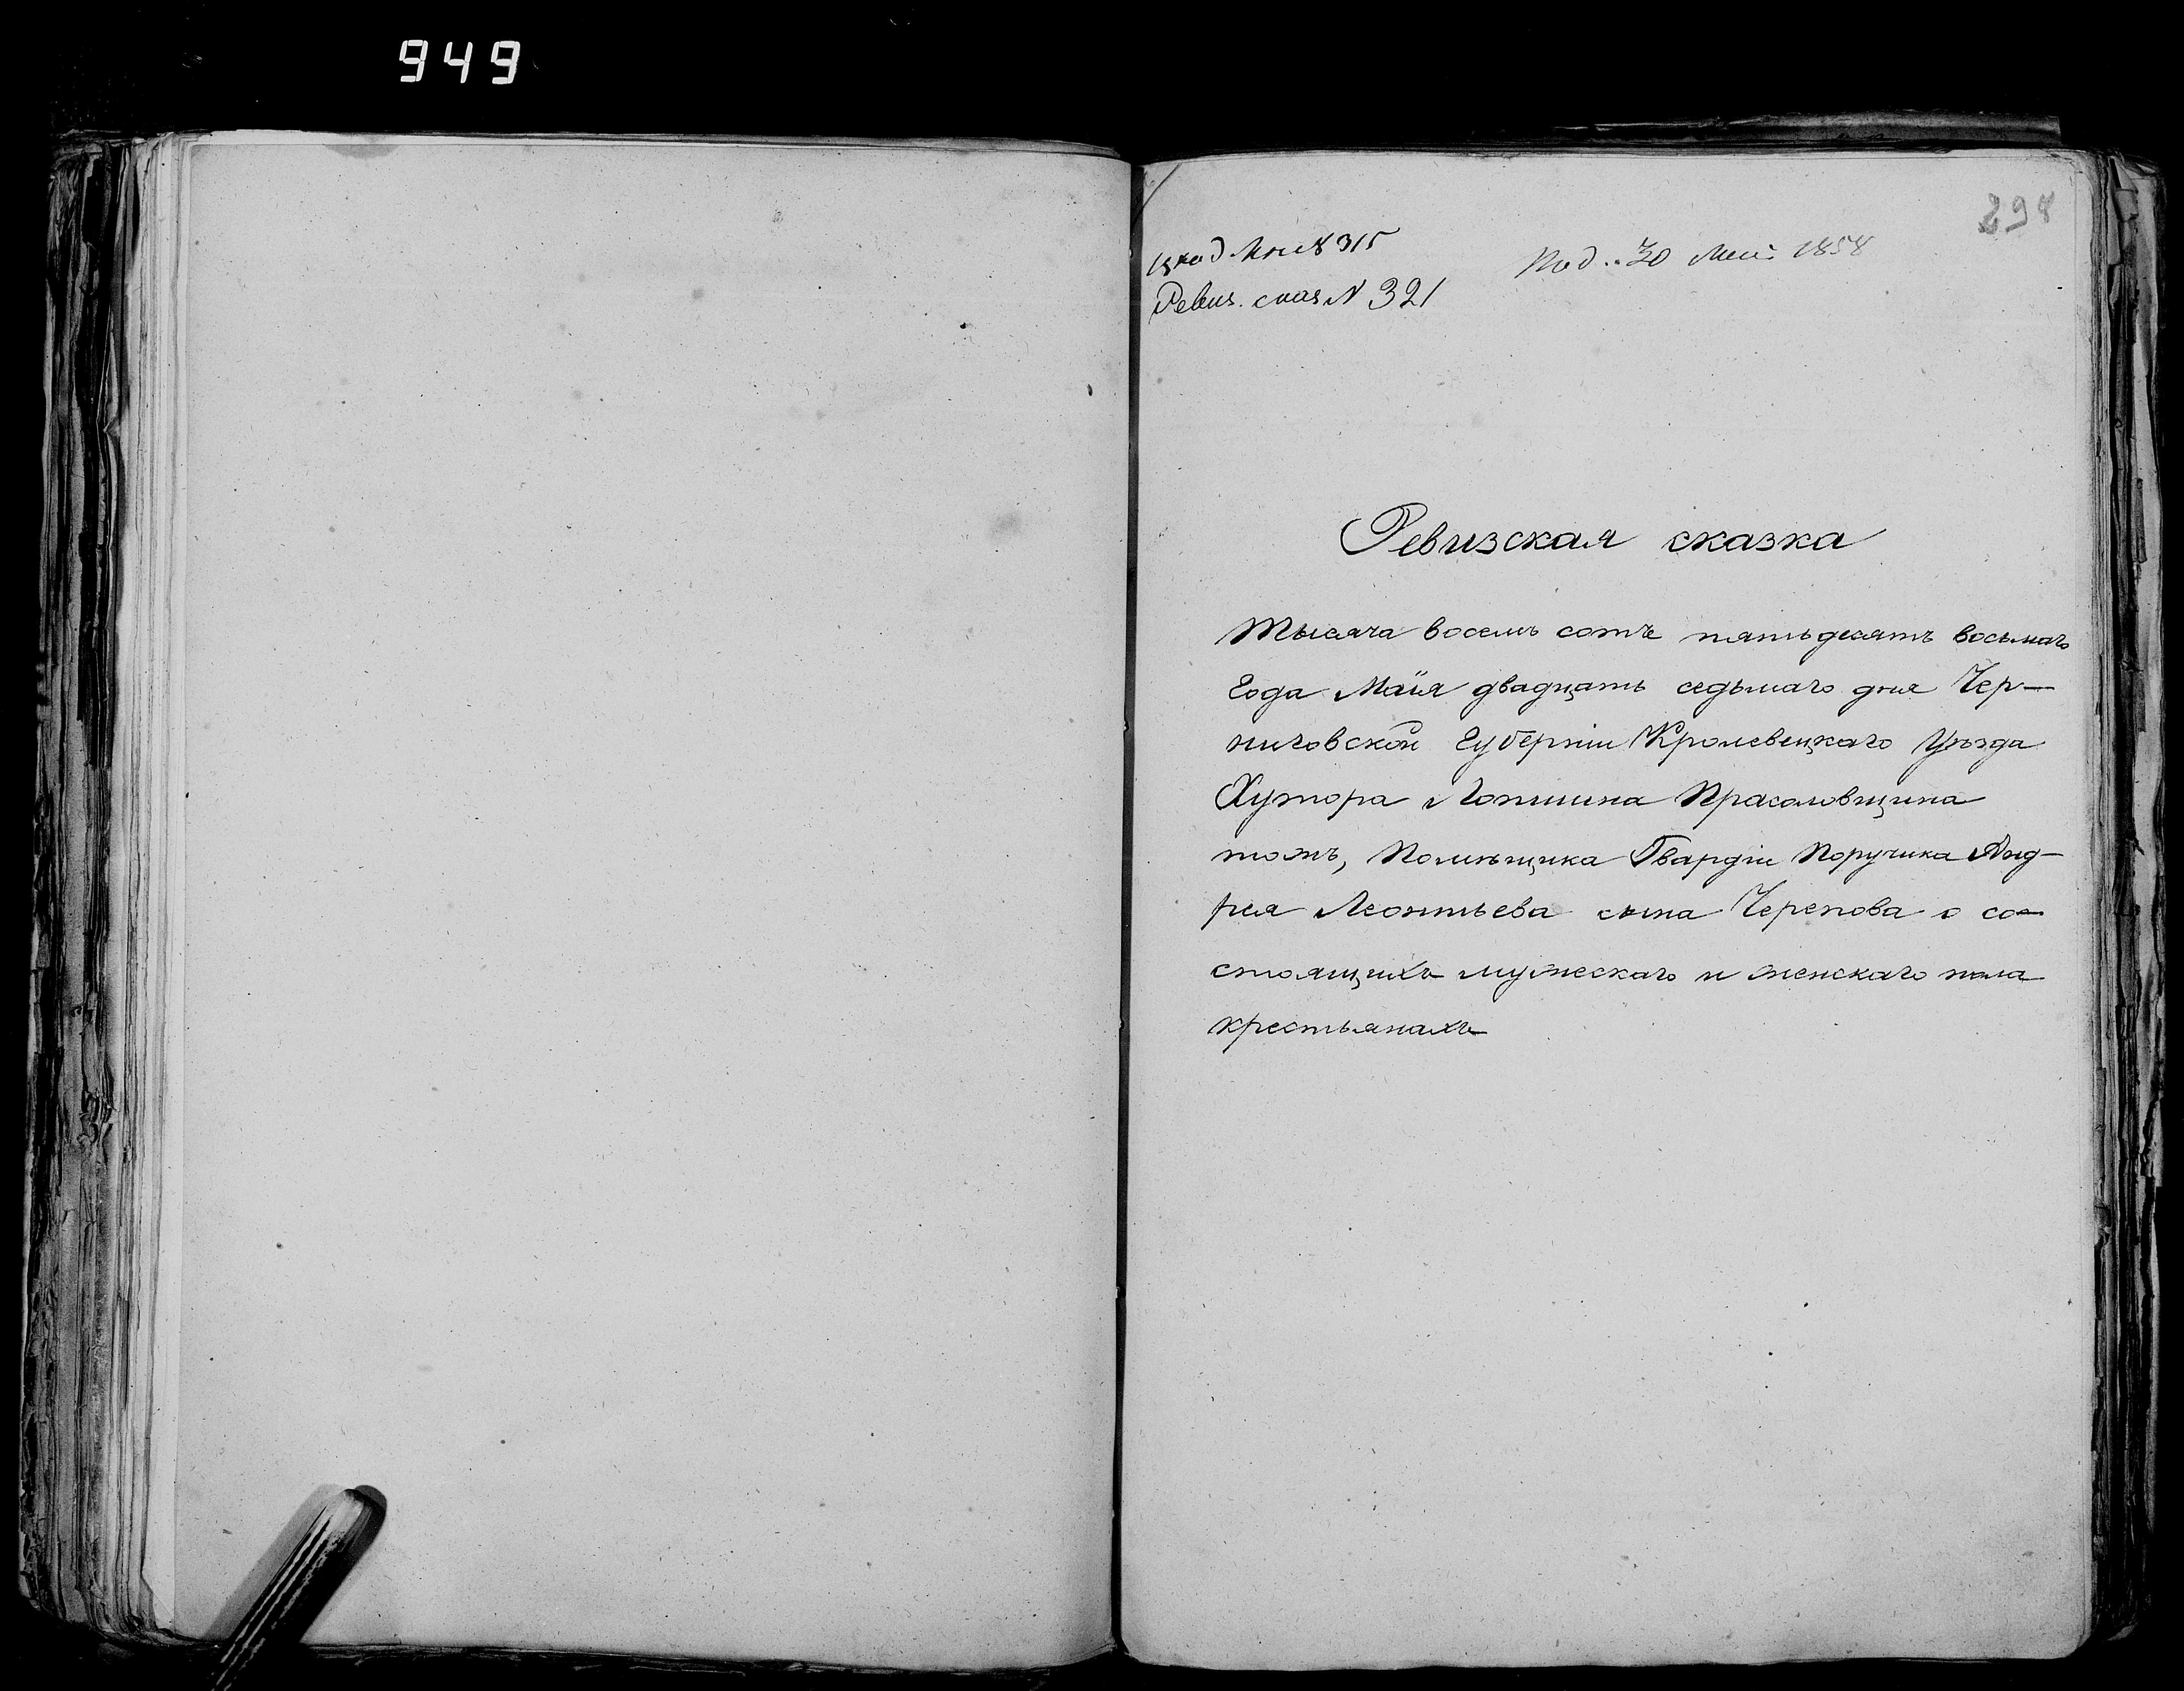 949
298
Вход. № 315
Под. 30 Мая 1858
Ревиз. сказ № 321
Ревизская сказка
Тысяча восемь сотъ пятьдесятъ восьмаго
Года Маія двадцать седьмаго дня Чер—
ниговской Губерніи Кролевецкаго Уѣзда
Хутора Лопшина Прасоловщина
тожъ, Помѣщика Гвардіи Поручика Анд—
рея Леонтьева сына Черепова о со—
стоящихъ мужескаго и женскаго пола
крестьянахъ